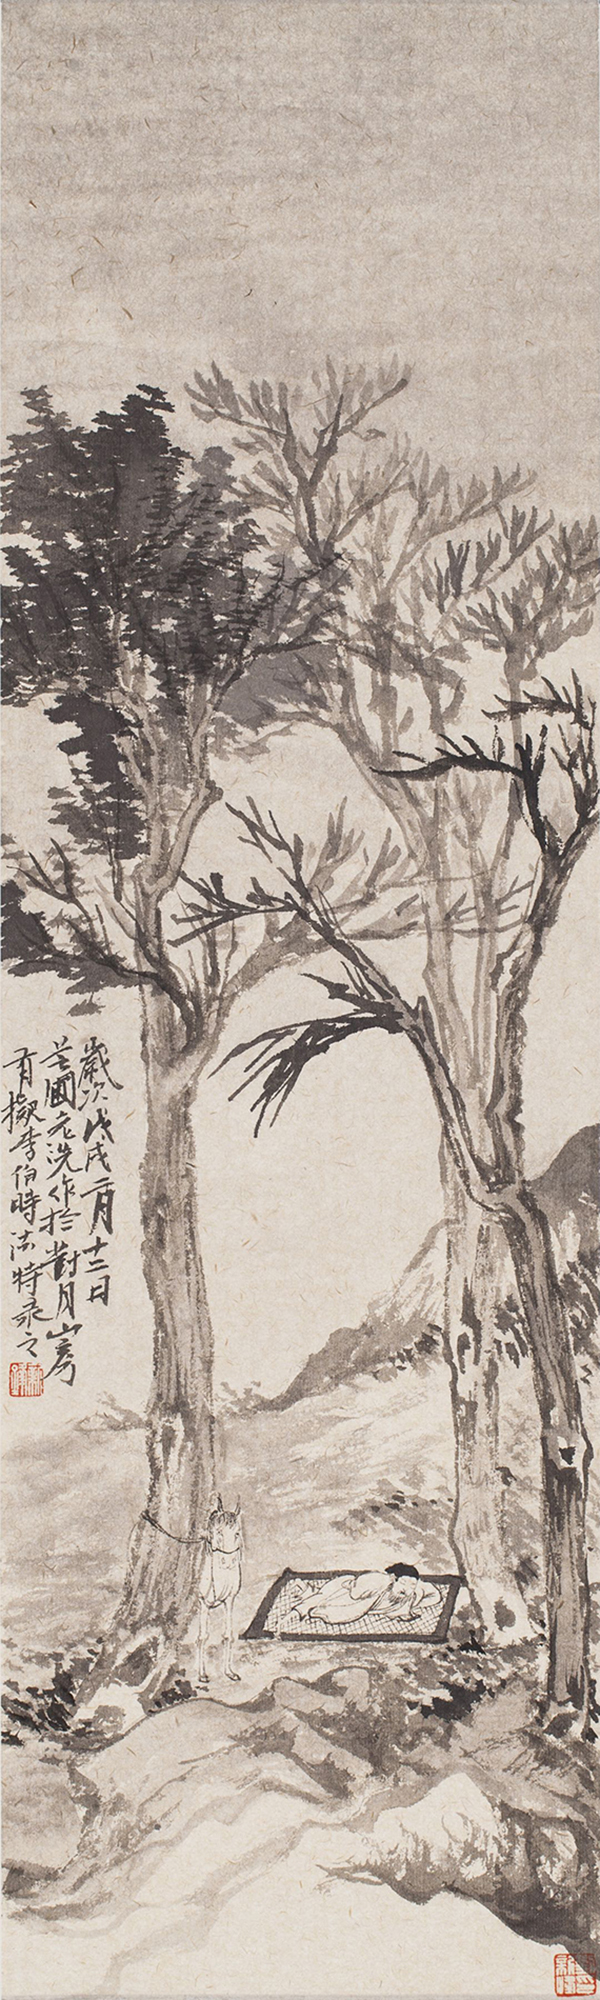 歲次戊戌二月十二日
芷園老洗作於對月山房
有擬李伯時法特录之